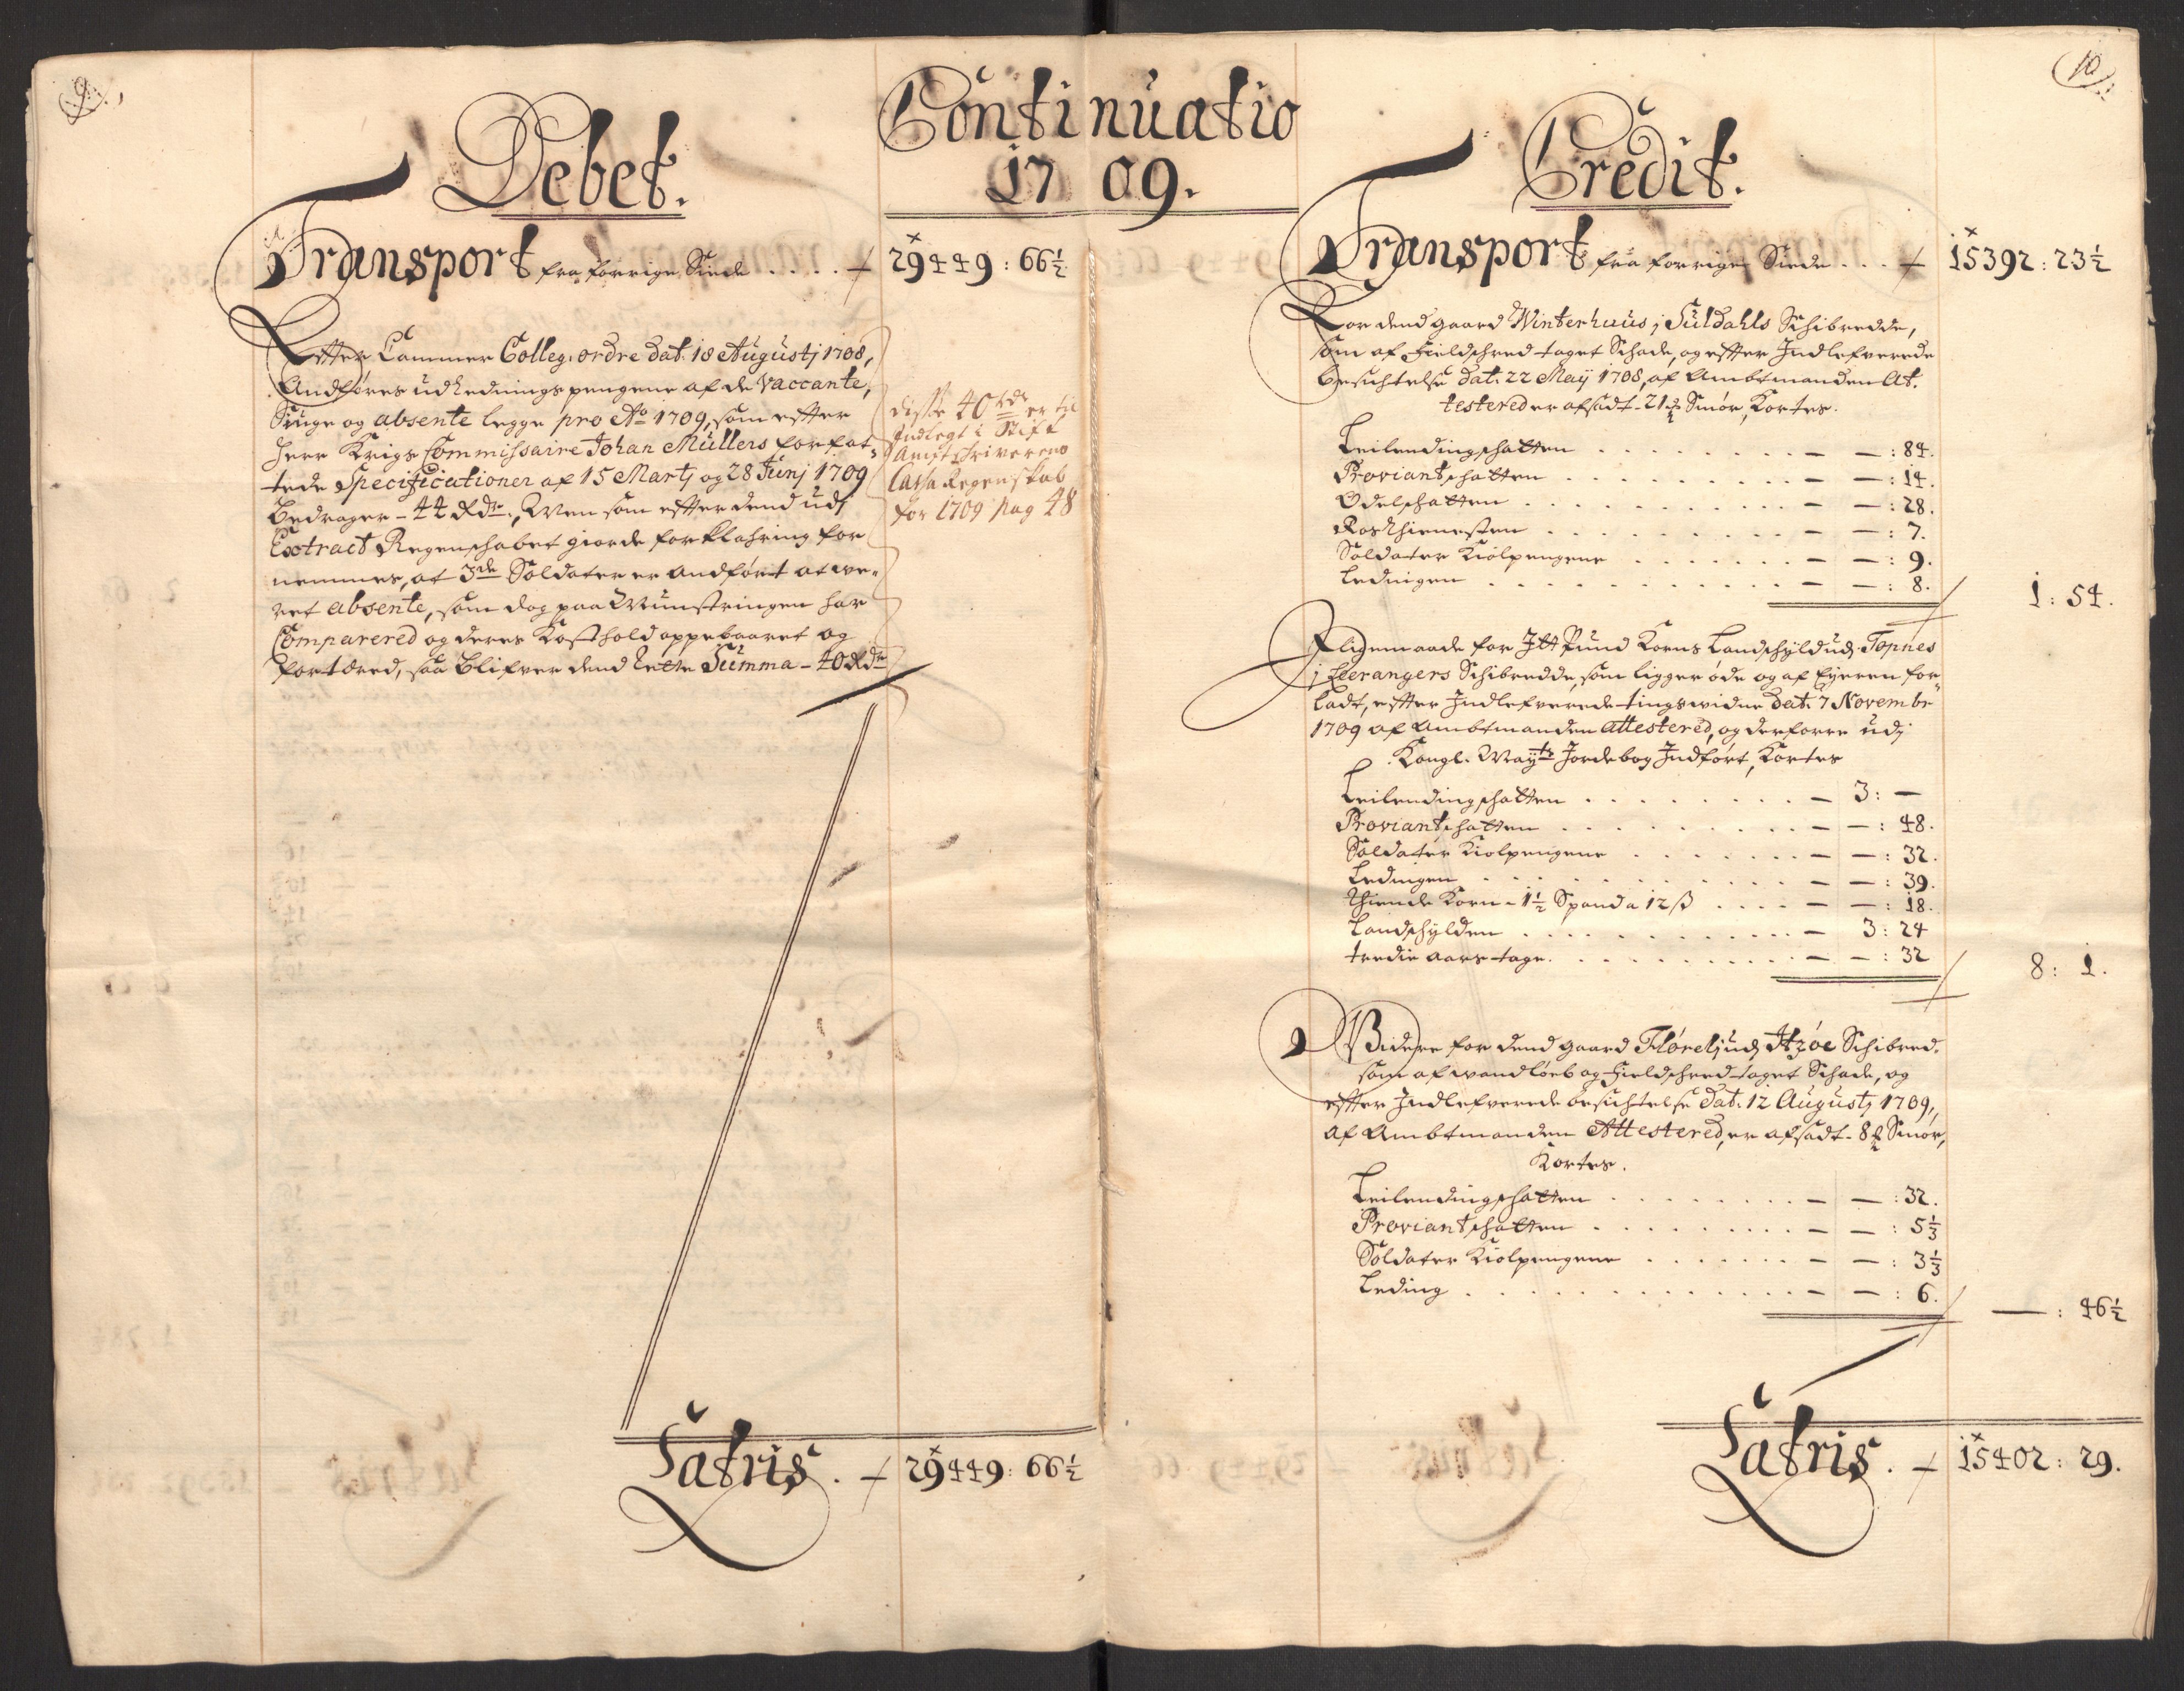 9.
Continuatio
1709.
Debet.
Transport fra forrige Siide . . . . 29449: 66½
Effter Cammer Colleg: ordre dat: 18 Augustj 1708,
Andføres udredningspengene af de vaccante,
Siuge og absente legge pro Ao 1709, som effter
Herr Krigs Commissaire Johan Müllers forfat-
tede Specificationer af 15 Martj og 28 Junj 1709
bedrager - 44 Rdr., Men som effter dend udj
Extract Regenschabet giorde forklahring for
nemmes, at 3de Soldater er andført at we-
ret absente, som dog paa Munstringen har
Comparered og deres Kosthold oppebaaret og
fortæred, saa blifver dend rette Summa - 40 Rdr
disse 40 rdr er til
Indtegt i Stift
Amptschriverens
Cassa Regenskab
for 1709 pag 48
Latris. 29449: 66½
10
Credit.
Transport fra forrige Siide . . . 15392: 23½
For dend gaard Winterhuus j Suldahls Schibredde,
som af Fieldschred taget Schade, og effter Indlefverede
besichtelse dat: 22 Maij 1708, af Ambtmanden At-
testered er afsadt - 21 Smør, Kortes.
Leilendingschatten . . . — : 84.
Proviantschatten . . . — : 14.
Odelschatten . . . — : 28.
Roschienesten . . . — : 7.
Soldater Kiolpengene . . . — : 9.
Ledingen . . . — : 8.
1: 54.
Jligemaade for Jtt Pund Korns Landschyld udj Topnes
j Jelerangers Schibredde, som ligger øde og af Eyeren for-
ladt, effter Indlefverede tingswidne dat: 7 Novembr
1709 af Ambtmanden attestered, og derforre udj
Kongl. Mayts Jordebog Indført, Kortes
Leilendingschatten . . . 3: —
Proviantschatten . . . — : 48.
Soldater Kiolpengene . . . — : 32.
Ledingen . . . — : 39.
Thiende Korn - 1½ Spand a 12 ß . . . — : 18.
Landschylden . . . 3: 24
tredie aars tage . . . — : 32
8: 1.
Widere for dend gaard Fløreli udj Hzøe Schibred.
som af wandløeb og Fieldschred taget Schade, og
effter Indlefverede besichtelse dat: 12 Augustj 1709,
af Ambtmanden Attestered, er afsadt - 8 Smør,
Kortes.
Leilendingschatten . . . — : 32.
Proviantschatten . . . — : 5⅓
Soldater Kiolpengene . . . — : 3⅓
Leding . . . — : 6.
— : 46½
Latris. 15402: 29.